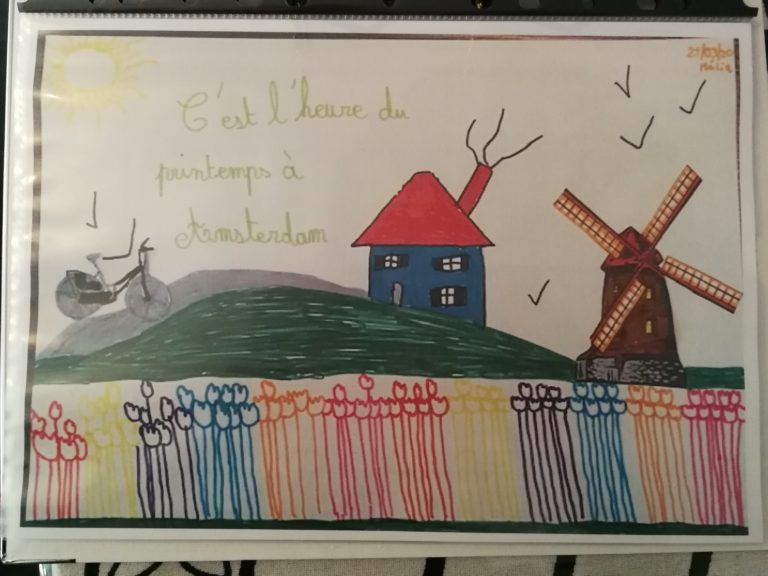 21/03/20
Mélia
C'est l'heure du
printemps à
Amsterdam